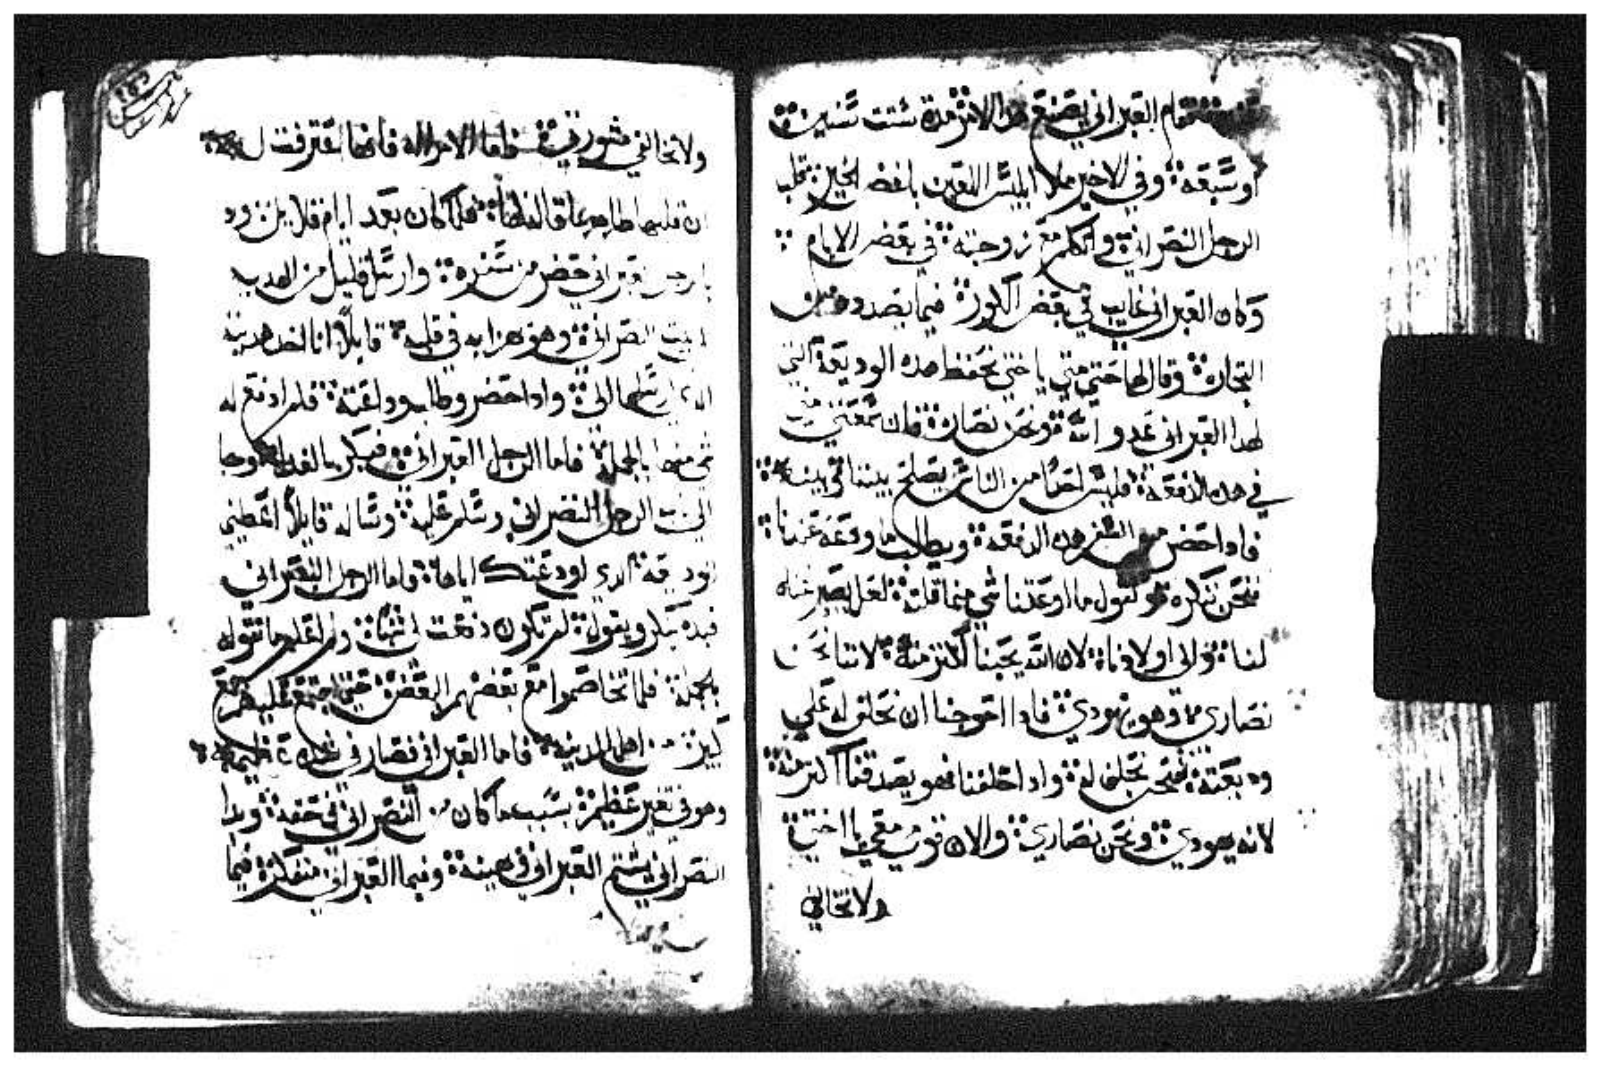 فقام العبراني يصنع هدا الامر مدة ستت سنين
او سبعة وفي الاخير ملا ابليس اللعين باغض الخير قلب
الرجل النصراني وتكلم مع زوجته في بعض الايام
وكان العبراني غايب في بعض الكور فيما يصدده من
التجارة وقال لها حتي متي يا اختي نحفظ هده الوديعة التي
لهدا العبراني عدو الله ونحن نصارة فان سمعتي مني
في هده الدفعة فليس احدًا من الناس يصلح بيننا وبينه
فادا حضر من السفر هده الدفعة ويطلب ما ودعه عندنا
فنحن ننكره ونقول ما اودعتنا شي منما قلته لعل يصير غناه
لنا ولي اولادنا لان الله يحبنا اكتر منه لاننا نحن
نصاري وهو يهودي فادا احوجنا ان نحلف له علي
وديعته فنحن نحلف له وادا حلفنا فهو يصدقنا اكتر منه
لانه يهودي ونحن نصاري والان قومي معي يا اختي
ولا تخالفي
ولا تخالفي مشورتي فاما الامراه فانها اعترفت ل
ان قلبها فلما كان بعد ايام قلايل
عبراني حضر من سفره وارسل قليل من الهديه
لبيت النصراني وهو يهزا به في قلبه قايلاً انا اخد هديته
ارسلها الي وادا حضر وطلب وداعته فلم ادفع له
شي منها بالجملة فاما الرجل العبراني فبكر بالغداه وجا
الي بيت الرجل النصراني وسلم عليه وساله قايلاً اعطيني
الوديعة الدي اودعتك اياها فاما الرجل النصراني
فبدا ينكر ويقول لم تكون دفعت لي شيًا ولم اعلم ما تقوله
بالجملة فلما تخاصموا مع بعضهم البعض حتي اجتمع عليهم جمع
كبير من اهل المدينه فاما العبراني فصار في عظيمه
وهو في تغير عظيم بسبب ما كان من النصراني في حقه وبدا
النصراني يشتم العبراني في دينه وفيما العبراني متفكر فيما